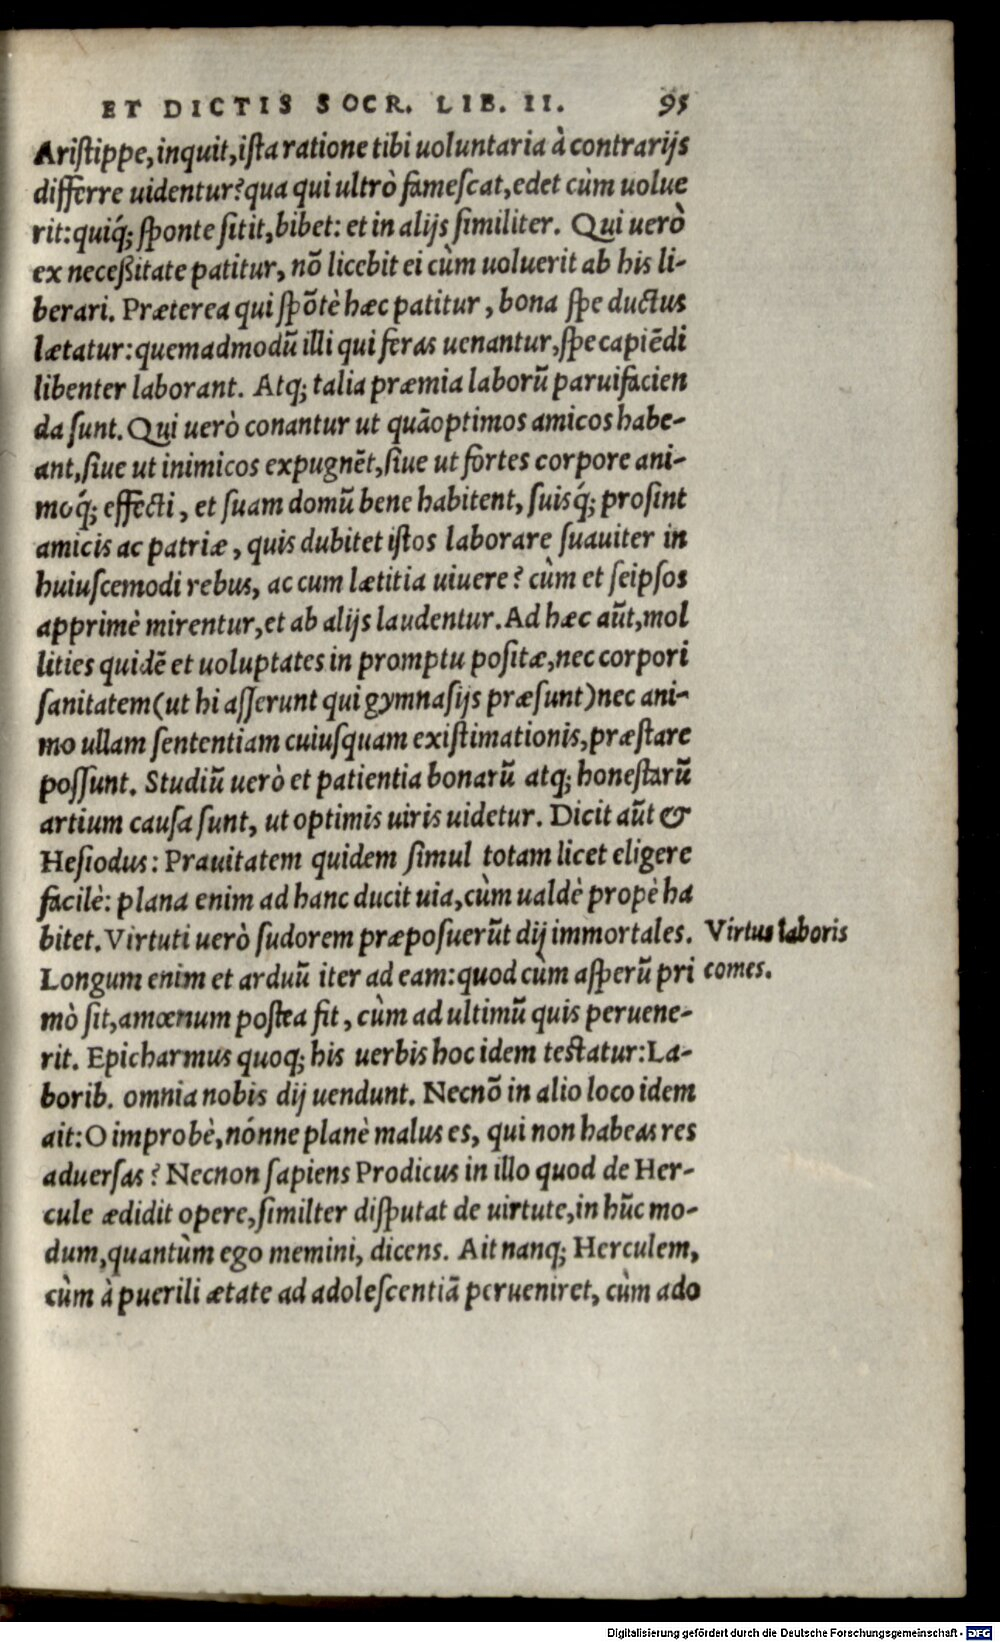 ET DICTIS SOCR. LIB. II. 95
Ariſtippe, inquit, iſta ratione tibi uoluntaria à contrarijs
differre uidentur? qua qui ultrò fameſcat, edet cùm uolue
rit: quiq́; ſponte ſitit, bibet: et in alijs ſimiliter. Qui uerò
ex neceßitate patitur, nõ licebit ei cùm uoluerit ab his li-
berari. Præterea qui ſpõtè hæc patitur, bona ſpe ductus
lætatur: quemadmodũ illi qui feras uenantur, ſpe capiẽdi
libenter laborant. Atq; talia præmia laborũ paruifacien
da ſunt. Qui uerò conantur ut quãoptimos amicos habe-
ant, ſiue ut inimicos expugnẽt, ſiue ut fortes corpore ani-
moq́; effecti, et ſuam domũ bene habitent, ſuisq́; proſint
amicis ac patriæ, quis dubitet iſtos laborare ſuauiter in
huiuſcemodi rebus, ac cum lætitia uiuere? cùm et ſeipſos
apprimè mirentur, et ab alijs laudentur. Ad hæc aũt, mol
lities quidẽ et uoluptates in promptu poſitæ, nec corpori
ſanitatem (ut hi aſſerunt qui gymnaſijs præſunt) nec ani-
mo ullam ſententiam cuiuſquam exiſtimationis, præſtare
poſſunt. Studiũ uerò et patientia bonarũ atq; honeſtarũ
artium cauſa ſunt, ut optimis uiris uidetur. Dicit aũt &
Heſiodus: Prauitatem quidem ſimul totam licet eligere
facilè: plana enim ad hanc ducit uia, cùm ualdè propè ha
bitet. Virtuti uerò ſudorem præpoſuerũt dij immortales.
Virtus laboris
Longum enim et arduũ iter ad eam: quod cùm aſperũ pri
comes.
mò ſit, amœnum poſtea fit, cùm ad ultimũ quis peruene-
rit. Epicharmus quoq; his uerbis hoc idem teſtatur: La-
borib. omnia nobis dij uendunt. Necnõ in alio loco idem
ait: O improbè, nónne planè malus es, qui non habeas res
aduerſas? Necnon ſapiens Prodicus in illo quod de Her-
cule ædidit opere, ſimilter diſputat de uirtute, in hũc mo-
dum, quantùm ego memini, dicens. Ait nanq; Herculem,
cùm à puerili ætate ad adoleſcentiã perueniret, cùm ado
Digitalisierung gefördert durch die Deutsche Forschungsgemeinschaft - DFG